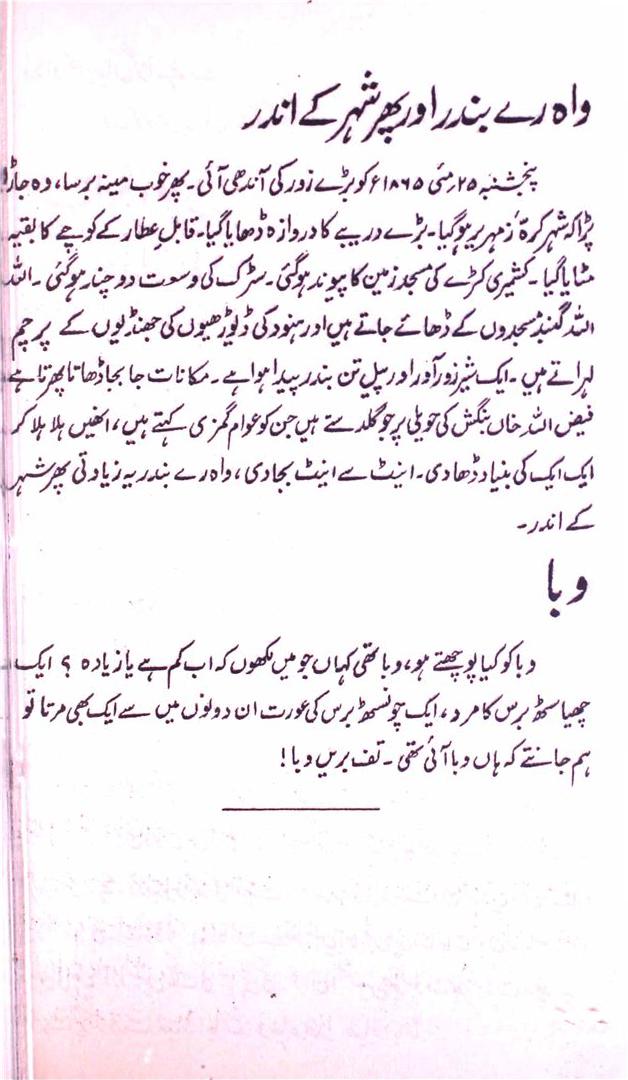 واہ رے بندر اور پھر شہر کے اندر
پنجشنبہ ۲۵ مئی ۱۸۶۵ء کو بڑے زور کی آندھی آئی۔ پھر خوب مینہ برسا، وہ جاڑا
پڑا کہ شہر کرۂ زمہریر ہو گیا۔ بڑے دریبے کا دروازہ ڈھایا گیا۔ قابل عطار کے کوچے کا بقیہ
مٹایا گیا۔ کشمیری کٹرے کی مسجد زمین کا پیوند ہو گئی۔ سڑک کی وسعت دو چند ہو گئی۔ اللہ
اللہ گنبد مسجدوں کے ڈھائے جاتے ہیں اور ہنود کی ڈیوڑھیوں کی جھنڈیوں کے پرچم
لہراتے ہیں۔ ایک شیر زور آور اور پیل تن بندر پیدا ہوا ہے۔ مکانات جا بجا ڈھاتا پھرتا ہے
فیض اللہ خاں بنگش کی حویلی پر جو گلدستے ہیں جن کو عوام گمزی کہتے ہیں، انھیں ہلا ہلا کر
ایک ایک کی بنیاد ڈھا دی۔ اینٹ سے اینٹ بجا دی، واہ رے بندر یہ زیادتی پھر شہر
کے اندر۔
وبا
وبا کو کیا پوچھتے ہو، وبا تھی کہاں جو میں لکھوں کہ اب کم ہے یا زیادہ ؟ ایک
چھیاسٹھ برس کا مرد، ایک چونسٹھ برس کی عورت ان دونوں میں سے ایک بھی مرتا تو
ہم جانتے کہ ہاں وبا آئی تھی۔ تف بریں وبا!